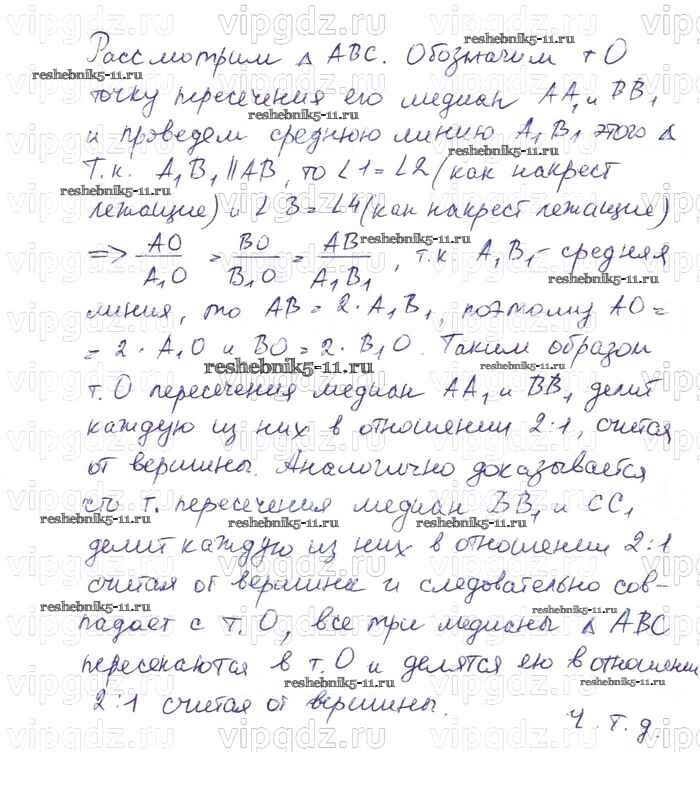 Рассмотрим △ ABC. Обозначим т O
точку пересечения его медиан AA₁ и BB₁
и проведем среднюю линию A₁B₁ этого △
Т.к. A₁B₁ || AB, то ∠1 = ∠2 (как накрест
лежащие) и ∠3 = ∠4 (как накрест лежащие)
=> AO/A₁O = BO/B₁O = AB/A₁B₁, т.к. A₁B₁ - средняя
линия, то AB = 2 · A₁B₁, поэтому AO =
= 2 · A₁O и BO = 2 · B₁O. Таким образом
т. O пересечения медиан AA₁ и BB₁ делит
каждую из них в отношении 2:1, считая
от вершины. Аналогично доказывается
что т. пересечения медиан BB₁ и CC₁
делит каждую из них в отношении 2:1
считая от вершины и следовательно сов-
падает с т. O, все три медианы △ ABC
пересекаются в т. O и делятся ею в отношении
2:1 считая от вершины.
ч.т.д.
vipgdz.ru
reshebnik5-11.ru